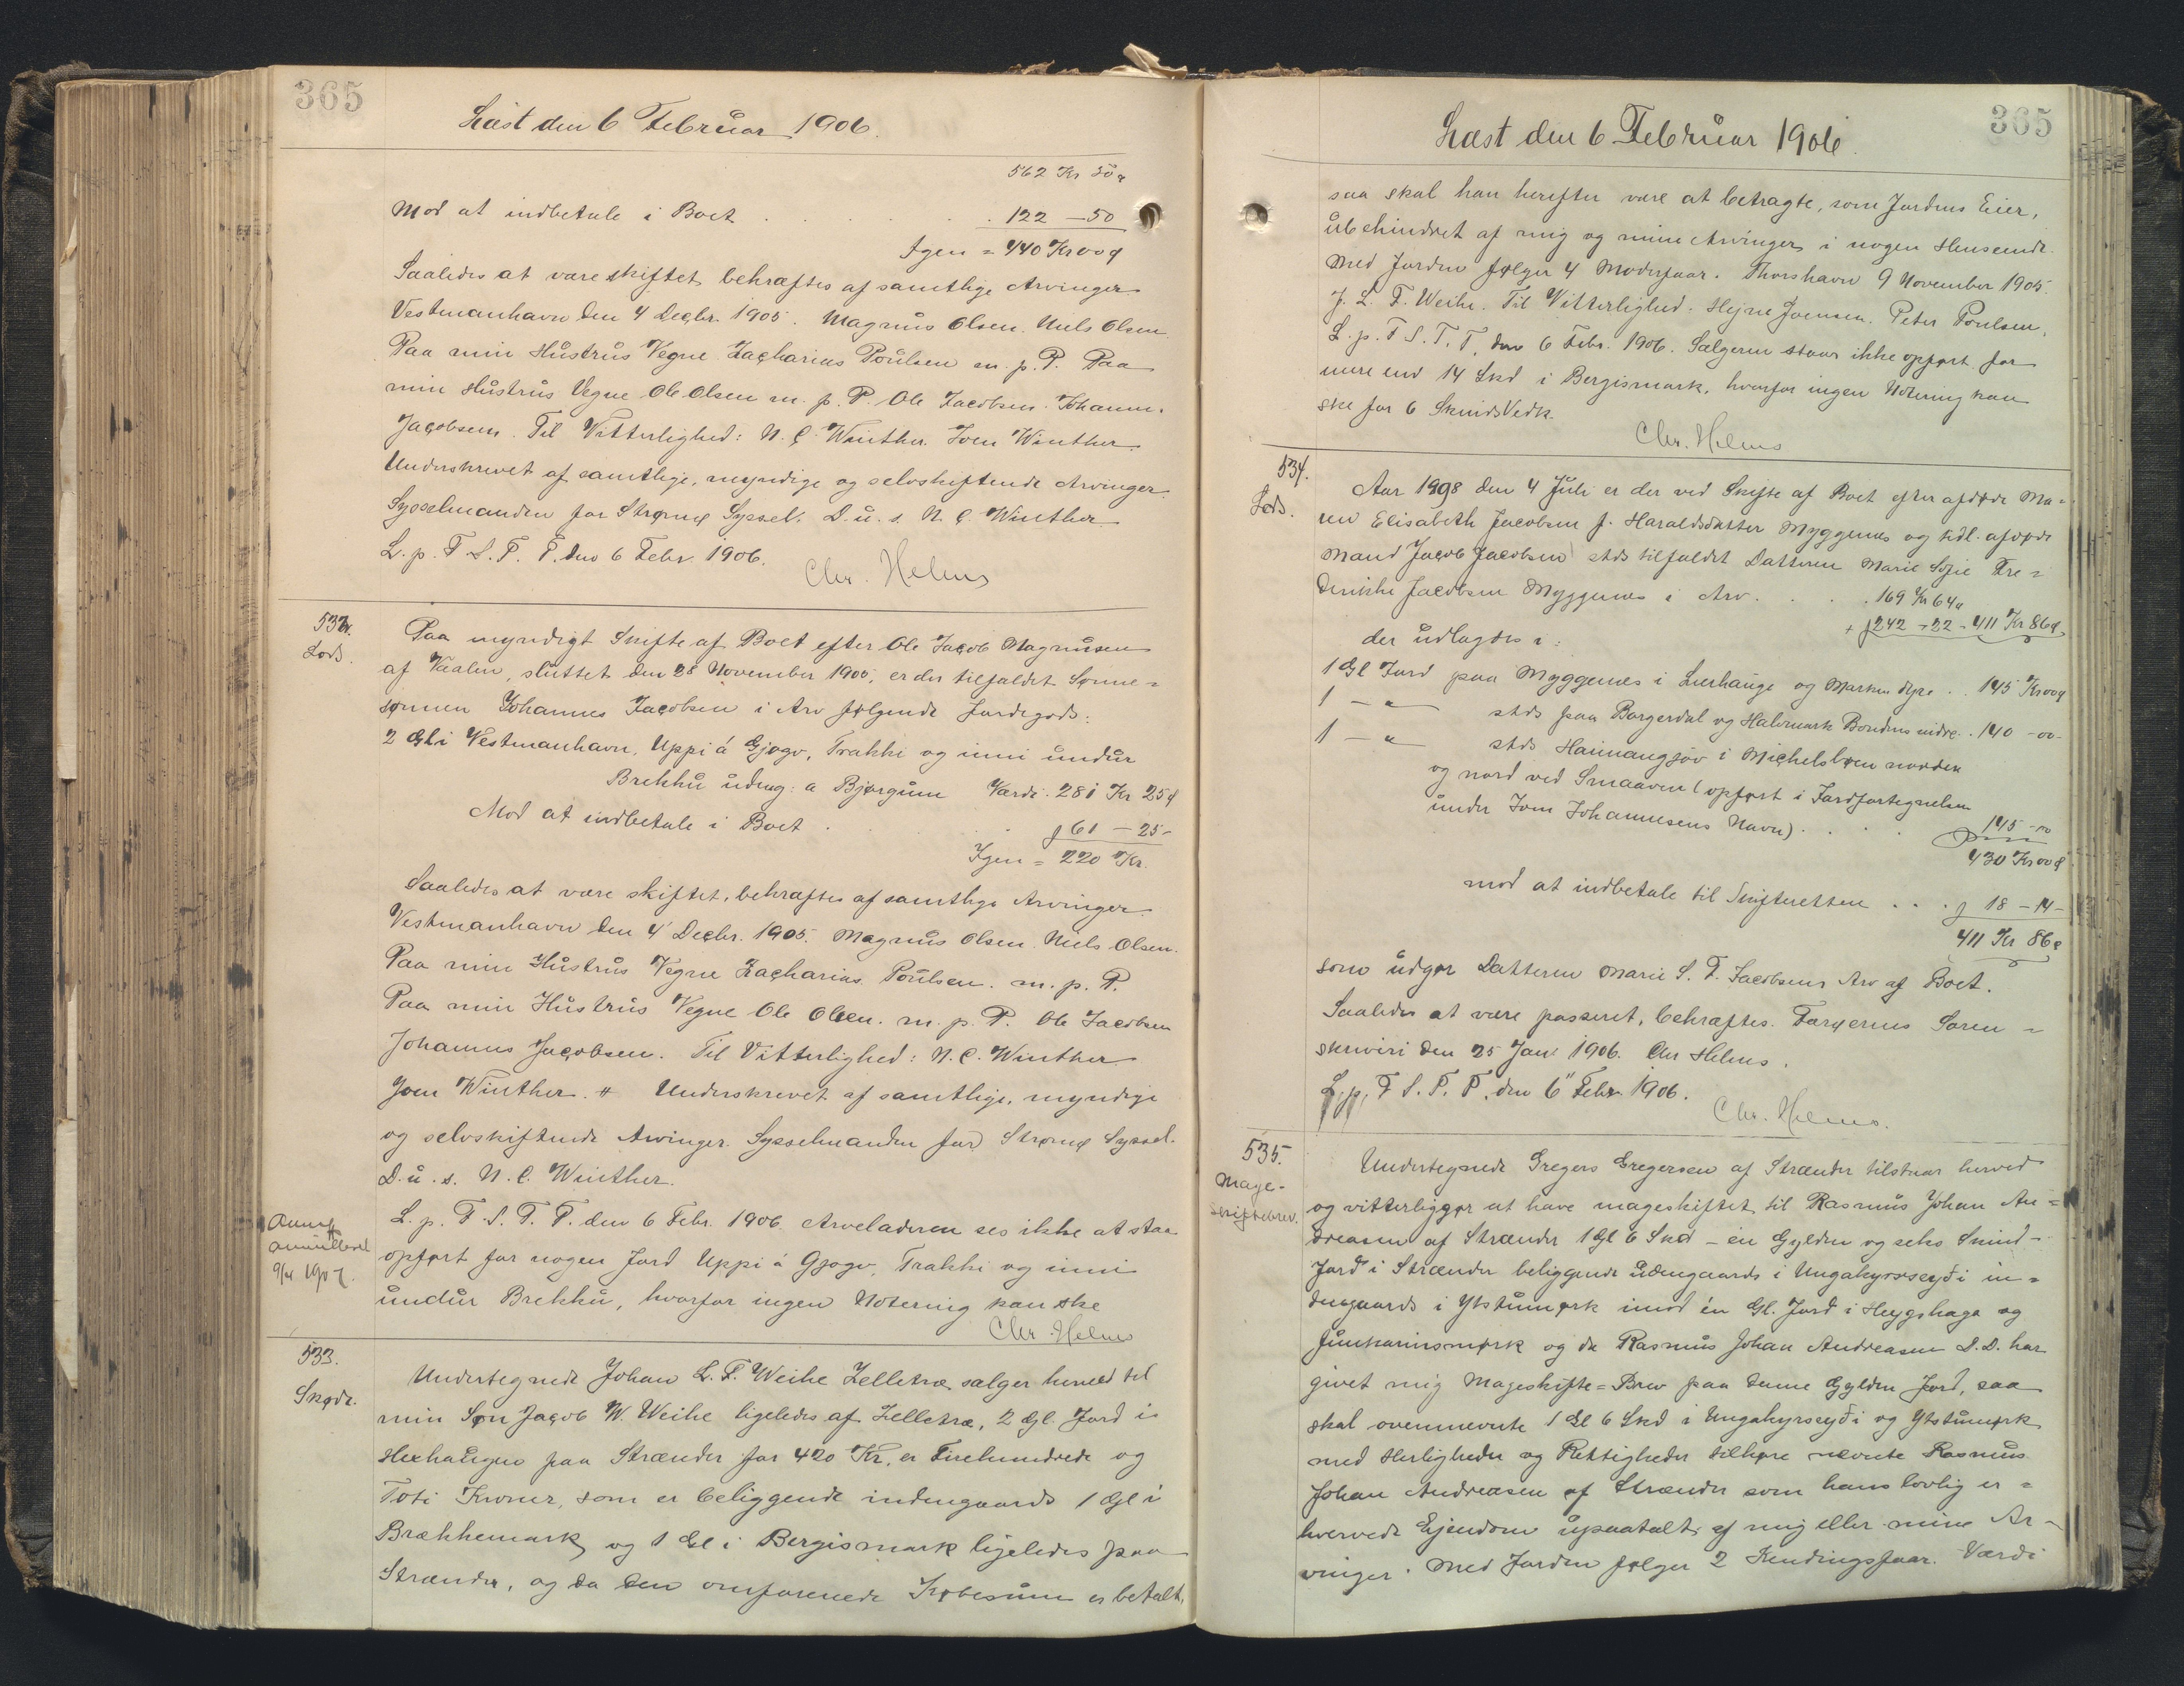 365
Læst den 6 Februar 1906.
562 Kr 50 ø
Mod at indbetale i Boet . . . . . . 122 — 50
Igen = 440 Kr 00 ø
Saaledes at være skiftet, bekræftes af samtlige Arvinger
Vestmanhavn den 4 Decbr. 1905. Magnus Olsen. Niels Olsen
Paa min Hustrus Vegne Zacharias Poulsen m. p. P. Paa
min Hustrus Vegne Ole Olsen m. p. P. Ole Jacobsen. Johann.
Jacobsen. Til Vitterlighed: N. C. Winther. Joen Winther.
Underskrevet af samtlige, myndige og selvskiftende Arvinger.
Sysselmanden for Strømø Syssel. D. u. s. N. C. Winther
L. p. F. S. T. P. den 6 Febr. 1906.
Chr. Helms
532.
Lods.
Paa myndigt Skifte af Boet efter Ole Jacob Magnusen
af Vaalen, sluttet den 28 November 1905, er der tilfaldet Sønne=
sønnen Johannes Jacobsen i Arv følgende Jordegods:
2 Gl i Vestmanhavn, Uppi á Gjogv, Trakki og inni undur
Brekku udmg: a Bjørgum Værdi. 281 Kr 25 ø
Mod at indbetale i Boet . . . 61 — 25 -
Igen = 220 Kr.
Saaledes at være skiftet, bekræftes af samtlige Arvinger.
Vestmanhavn den 4 Decbr. 1905. Magnus Olsen. Niels Olsen.
Paa min Hustrus Vegne Zacharias Poulsen. m. p. P.
Paa min Hustrus Vegne Ole Olsen. m. p. P. Ole Jacobsen
Johannes Jacobsen. Til Vitterlighed: N. C. Winther
Joen Winther. # Underskrevet af samtlige, myndige
og selvskiftende Arvinger. Sysselmanden for Strømø Syssel.
D. u. s. N. C. Winther.
L. p. F. S. T. P. den 6 Febr. 1906. Arveladeren ses ikke at staa
opført for nogen Jord Uppi á Gjogv, Trakki og inni
undur Brekku, hvorfor ingen Notering kan ske
Chr. Helms
annulleret
9/4 1907.
533.
Skøde.
Undertegnede Johan L. F. Weihe Zelletræ sælger herved til
min Søn Jacob W. Weihe ligeledes af Zelletræ, 2 Gl. Jord i
Hexhaugno paa Strænder for 420 Kr, er Firehundrede og
Toti Kroner, som er beliggende indengaards 1 Gl i
Brækkemark og 1 Gl i Bergismark ligeledes paa
Strænder, og da den omforenede Købesum er betalt,
365
Læst den 6 Februar 1906.
saa skal han herefter være at betragte, som Jordens Eier,
ubehindret af mig og mine Arvinger i nogen Henseende.
Med Jorden følger 4 Moderfaar. Thorshavn 9 November 1905.
J. L. F. Weihe. Til Vitterlighed. Hejne Joensen. Peter Poulsen.
L. p. F. S. T. P. den 6 Febr. 1906. Sælgeren staar ikke opført for
mere end 14 Skd i Bergismark, hvorfor ingen Notering kan
ske for 6 Skinds Vedk.
Chr. Helms
534.
Lods.
Aar 1898 den 4 Juli er der ved Skifte af Boet efter afdøde Ma=
ren Elisabeth Jacobsen f. Haraldsdatter Myggenæs og tidl. afdøde
Mand Jacob Jacobsen stds tilfaldet Datteren Marie Sofie Fre=
derikke Jacobsen Myggenæs i Arv . . . . 169 Kr 64 ø
+ 242 - 22 = 411 Kr 86 ø
der udlagdes:
1 Gl Jord paa Myggenæs i Lierhauge og Marken dyre . . 145 Kr 00 ø
1 — " — stds paa Borgerdal og Halvmark Bondens nidre . . 140 - 00 -
1 — " — stds Haimangjov i Michelsboen norden
og nord ved Smaaven (opført i Jordfortegnelsen
under Joen Johannesens Navn) . . . . 145 - 00
430 Kr 00 ø
mod at indbetale til Skifteretten . . . 18 - 14 -
411 Kr 86 ø
som udgør Datteren Marie S. F. Jacobsens Arv af Boet.
Saaledes at være passeret, bekræftes. Færøernes Soren=
skriveri den 25 Jan 1906. Chr Helms.
L. p. F. S. T. P. den 6" Febr. 1906.
Chr. Helms.
535.
Mage-
skiftebrev.
Undertegnede Gregers Gregersen af Strænder tilstaar herved
og vitterliggør at have mageskiftet til Rasmus Johan An=
dreasen af Strænder 1 Gl 6 Skd — én Gylden og seks Skind-
Jord i Strænder beliggende udengaards i Ungakyrseyði in=
dengaards i Ytstumørk imod én Gl. Jord i Heygshaga og
Junkarinsmørk og da Rasmus Johan Andreasen D. D. har
givet mig Mageskifte=Brev paa denne Gylden Jord, saa
skal ovennævnte 1 Gl 6 Skd i Ungakyrseyði og Ytstumørk
med Herligheder og Rettigheder tilhøre nævnte Rasmus
Johan Andreasen af Strænder som hans lovlig er=
hvervede Ejendom upaatalt af mig eller mine Ar-
vinger. Med Jorden følger 2 Kendingsfaar. Værdi